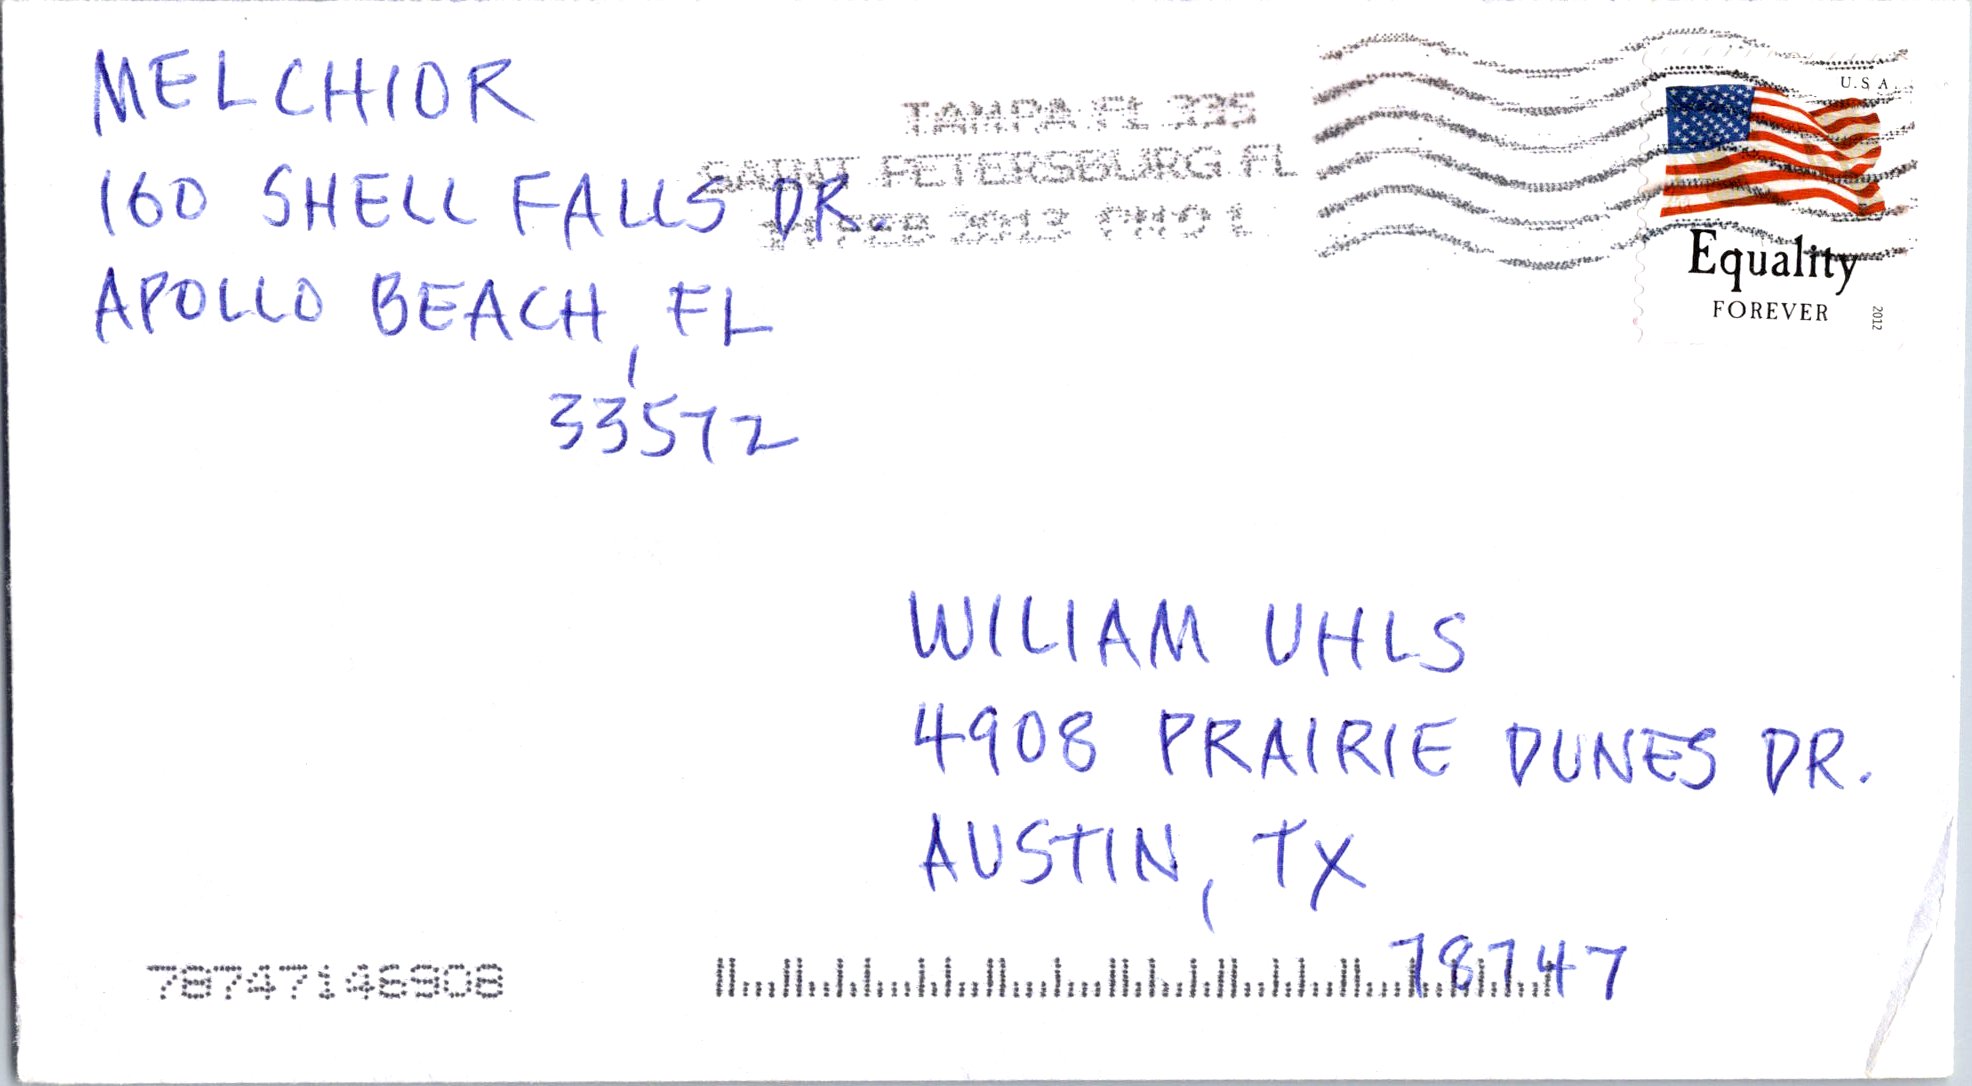 MELCHIOR
160 SHELL FALLS DR.
APOLLO BEACH, FL
33572
TAMPA FL 335
SAINT PETERSBURG FL
FEB 2013 PM 2 L
U.S.A.
Equality
FOREVER
2012
WILIAM UHLS
4908 PRAIRIE DUNES DR.
AUSTIN, TX
78747
78747146908